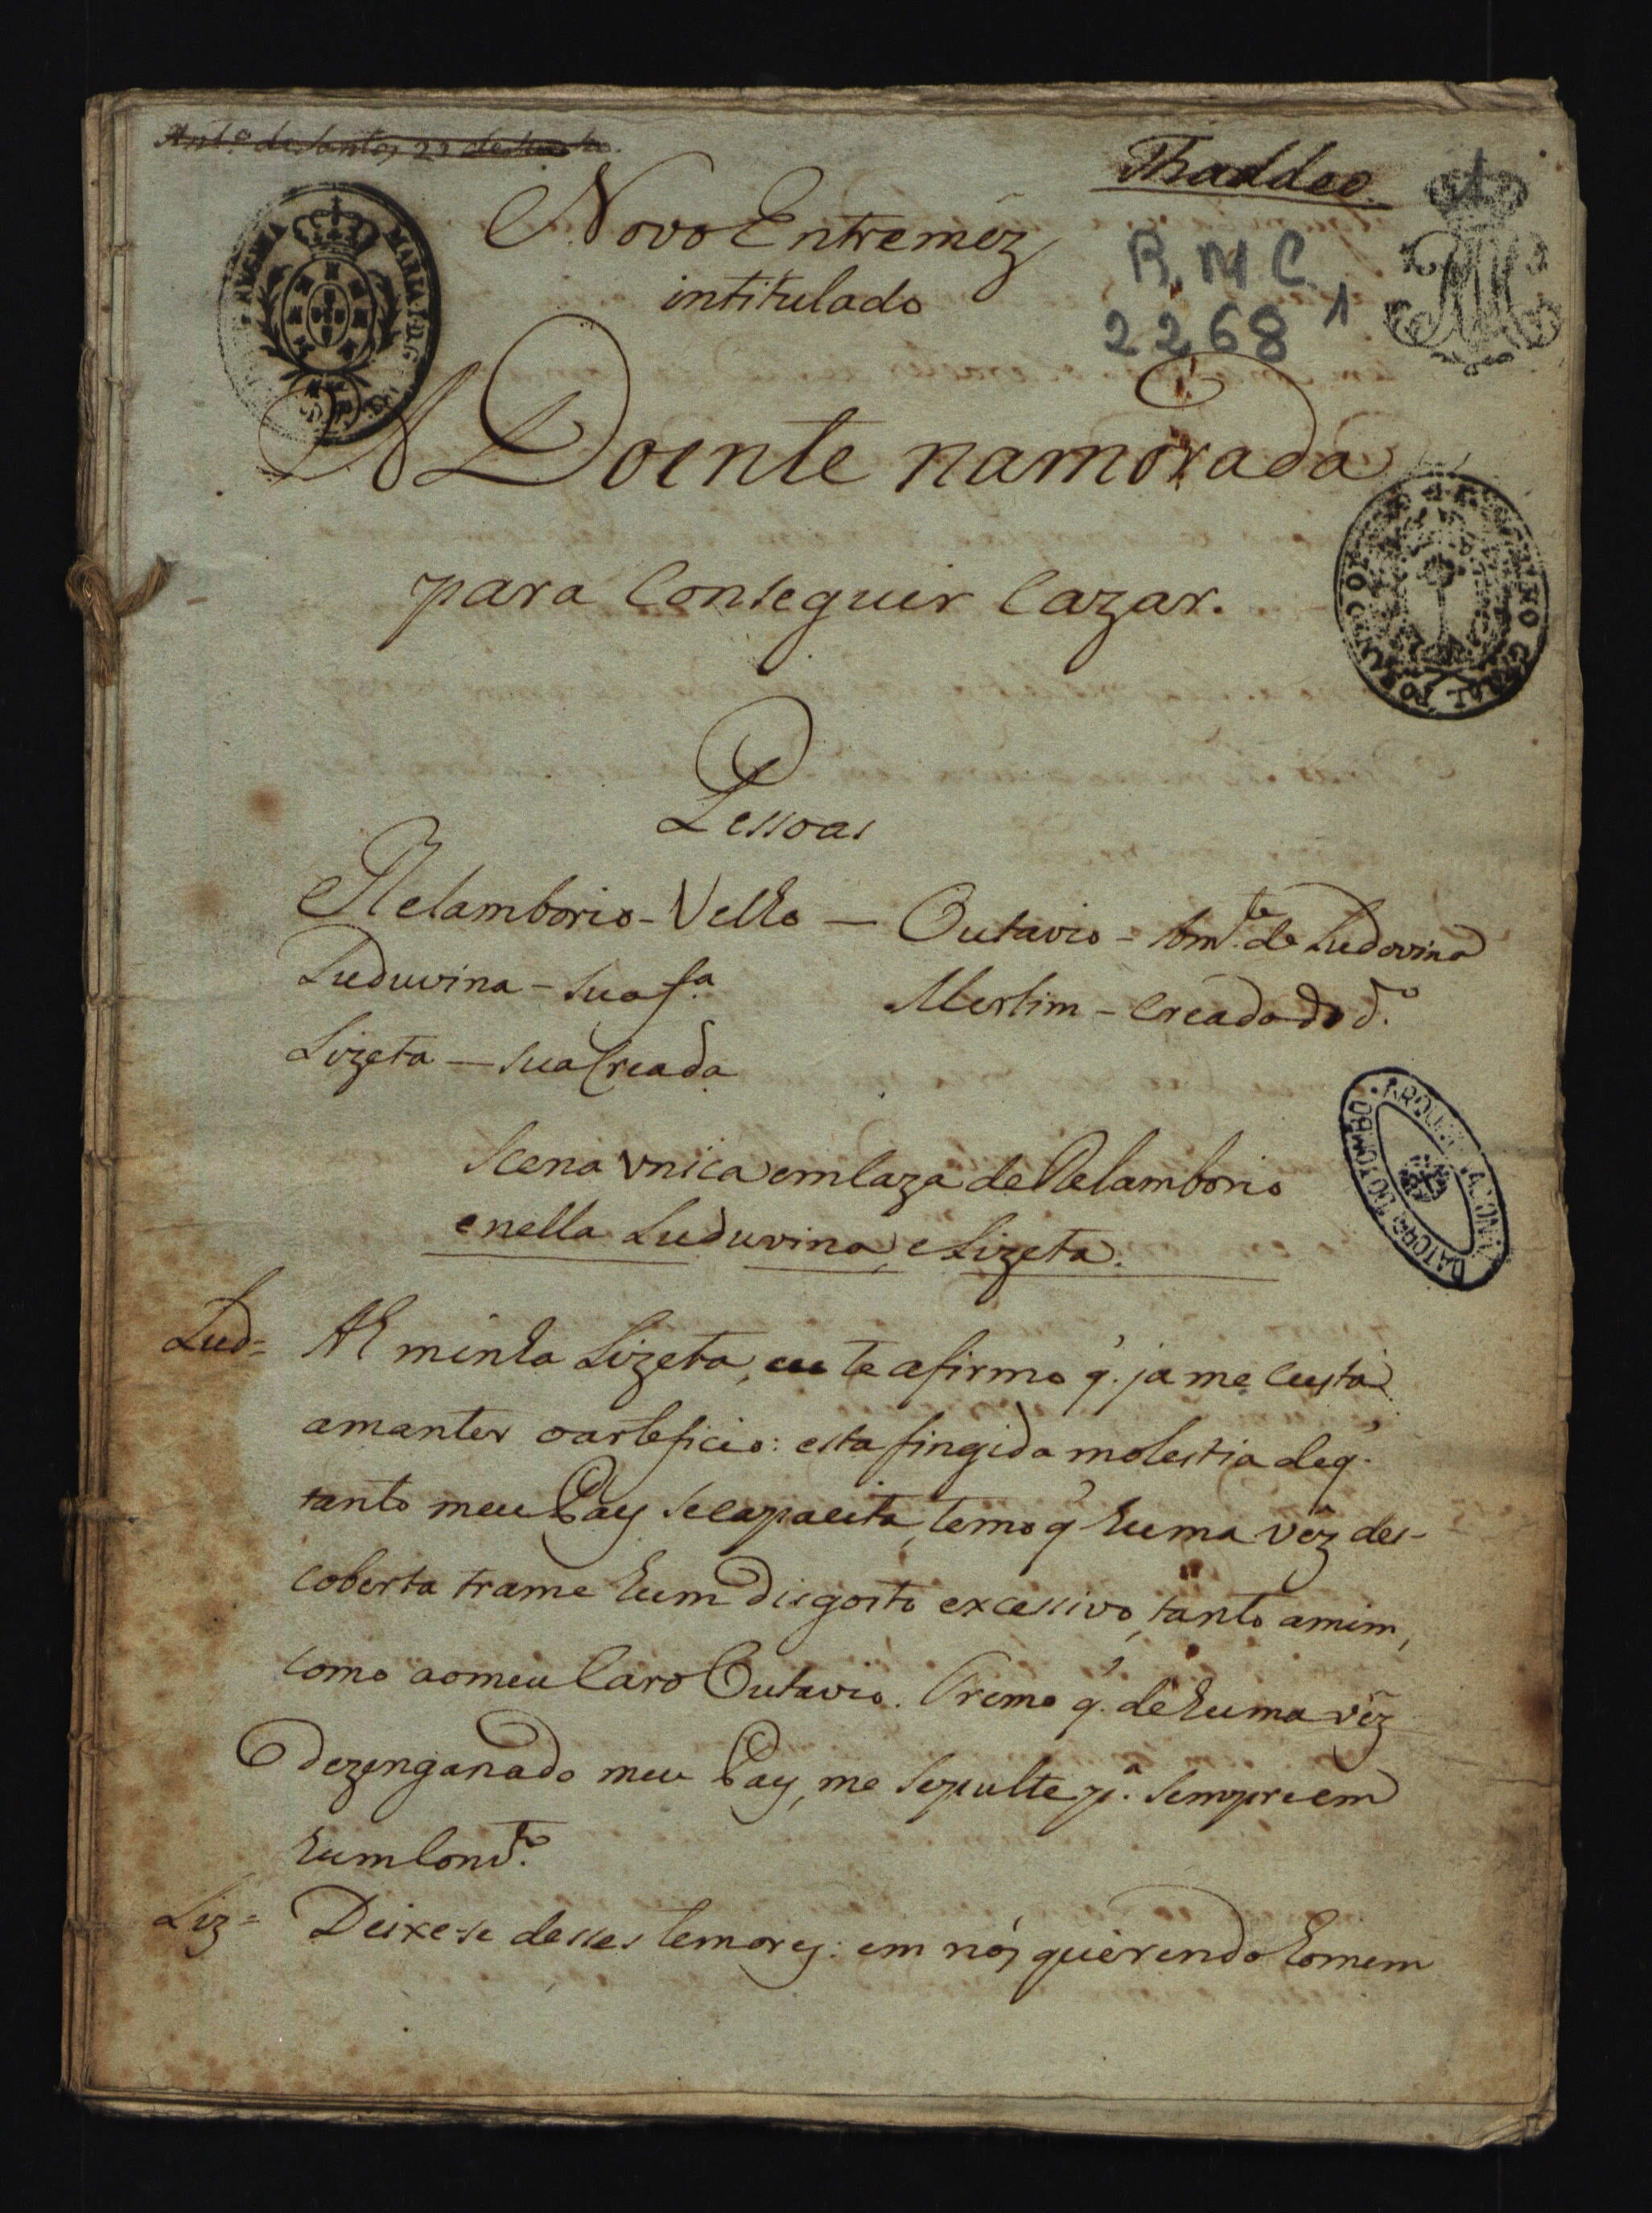 Thaddeo.
Novo Entreméz
intitulado
R. M. C.
2268 1
A Doente namorada
para Conseguir Cazar.
Pessoas
Pelamborio - Velho — Outavio - Am.te de Ludovina
Luduvina - sua f.a
Mertim - Creado do d.o
Lizeta — sua Creada
Scena vnica em Caza de Pelamborio
e nella Luduvina, e Lizeta.
Lud= Ah minha Lizeta, eu te afirmo q. ja me custa
amanter oarteficio: esta fingida molestia deq.
tanto meu Pay secapacita, temo q huma vêz des-
coberta trame hum disgosto excessivo, tanto amim,
como aomeu Caro Outavio. Tremo q. de huma vêz
dezenganado meu Pay, me sepulte p.a sempre em
hum Conv.to
Liz= Deixe-se desses temores: em nós querendo homem